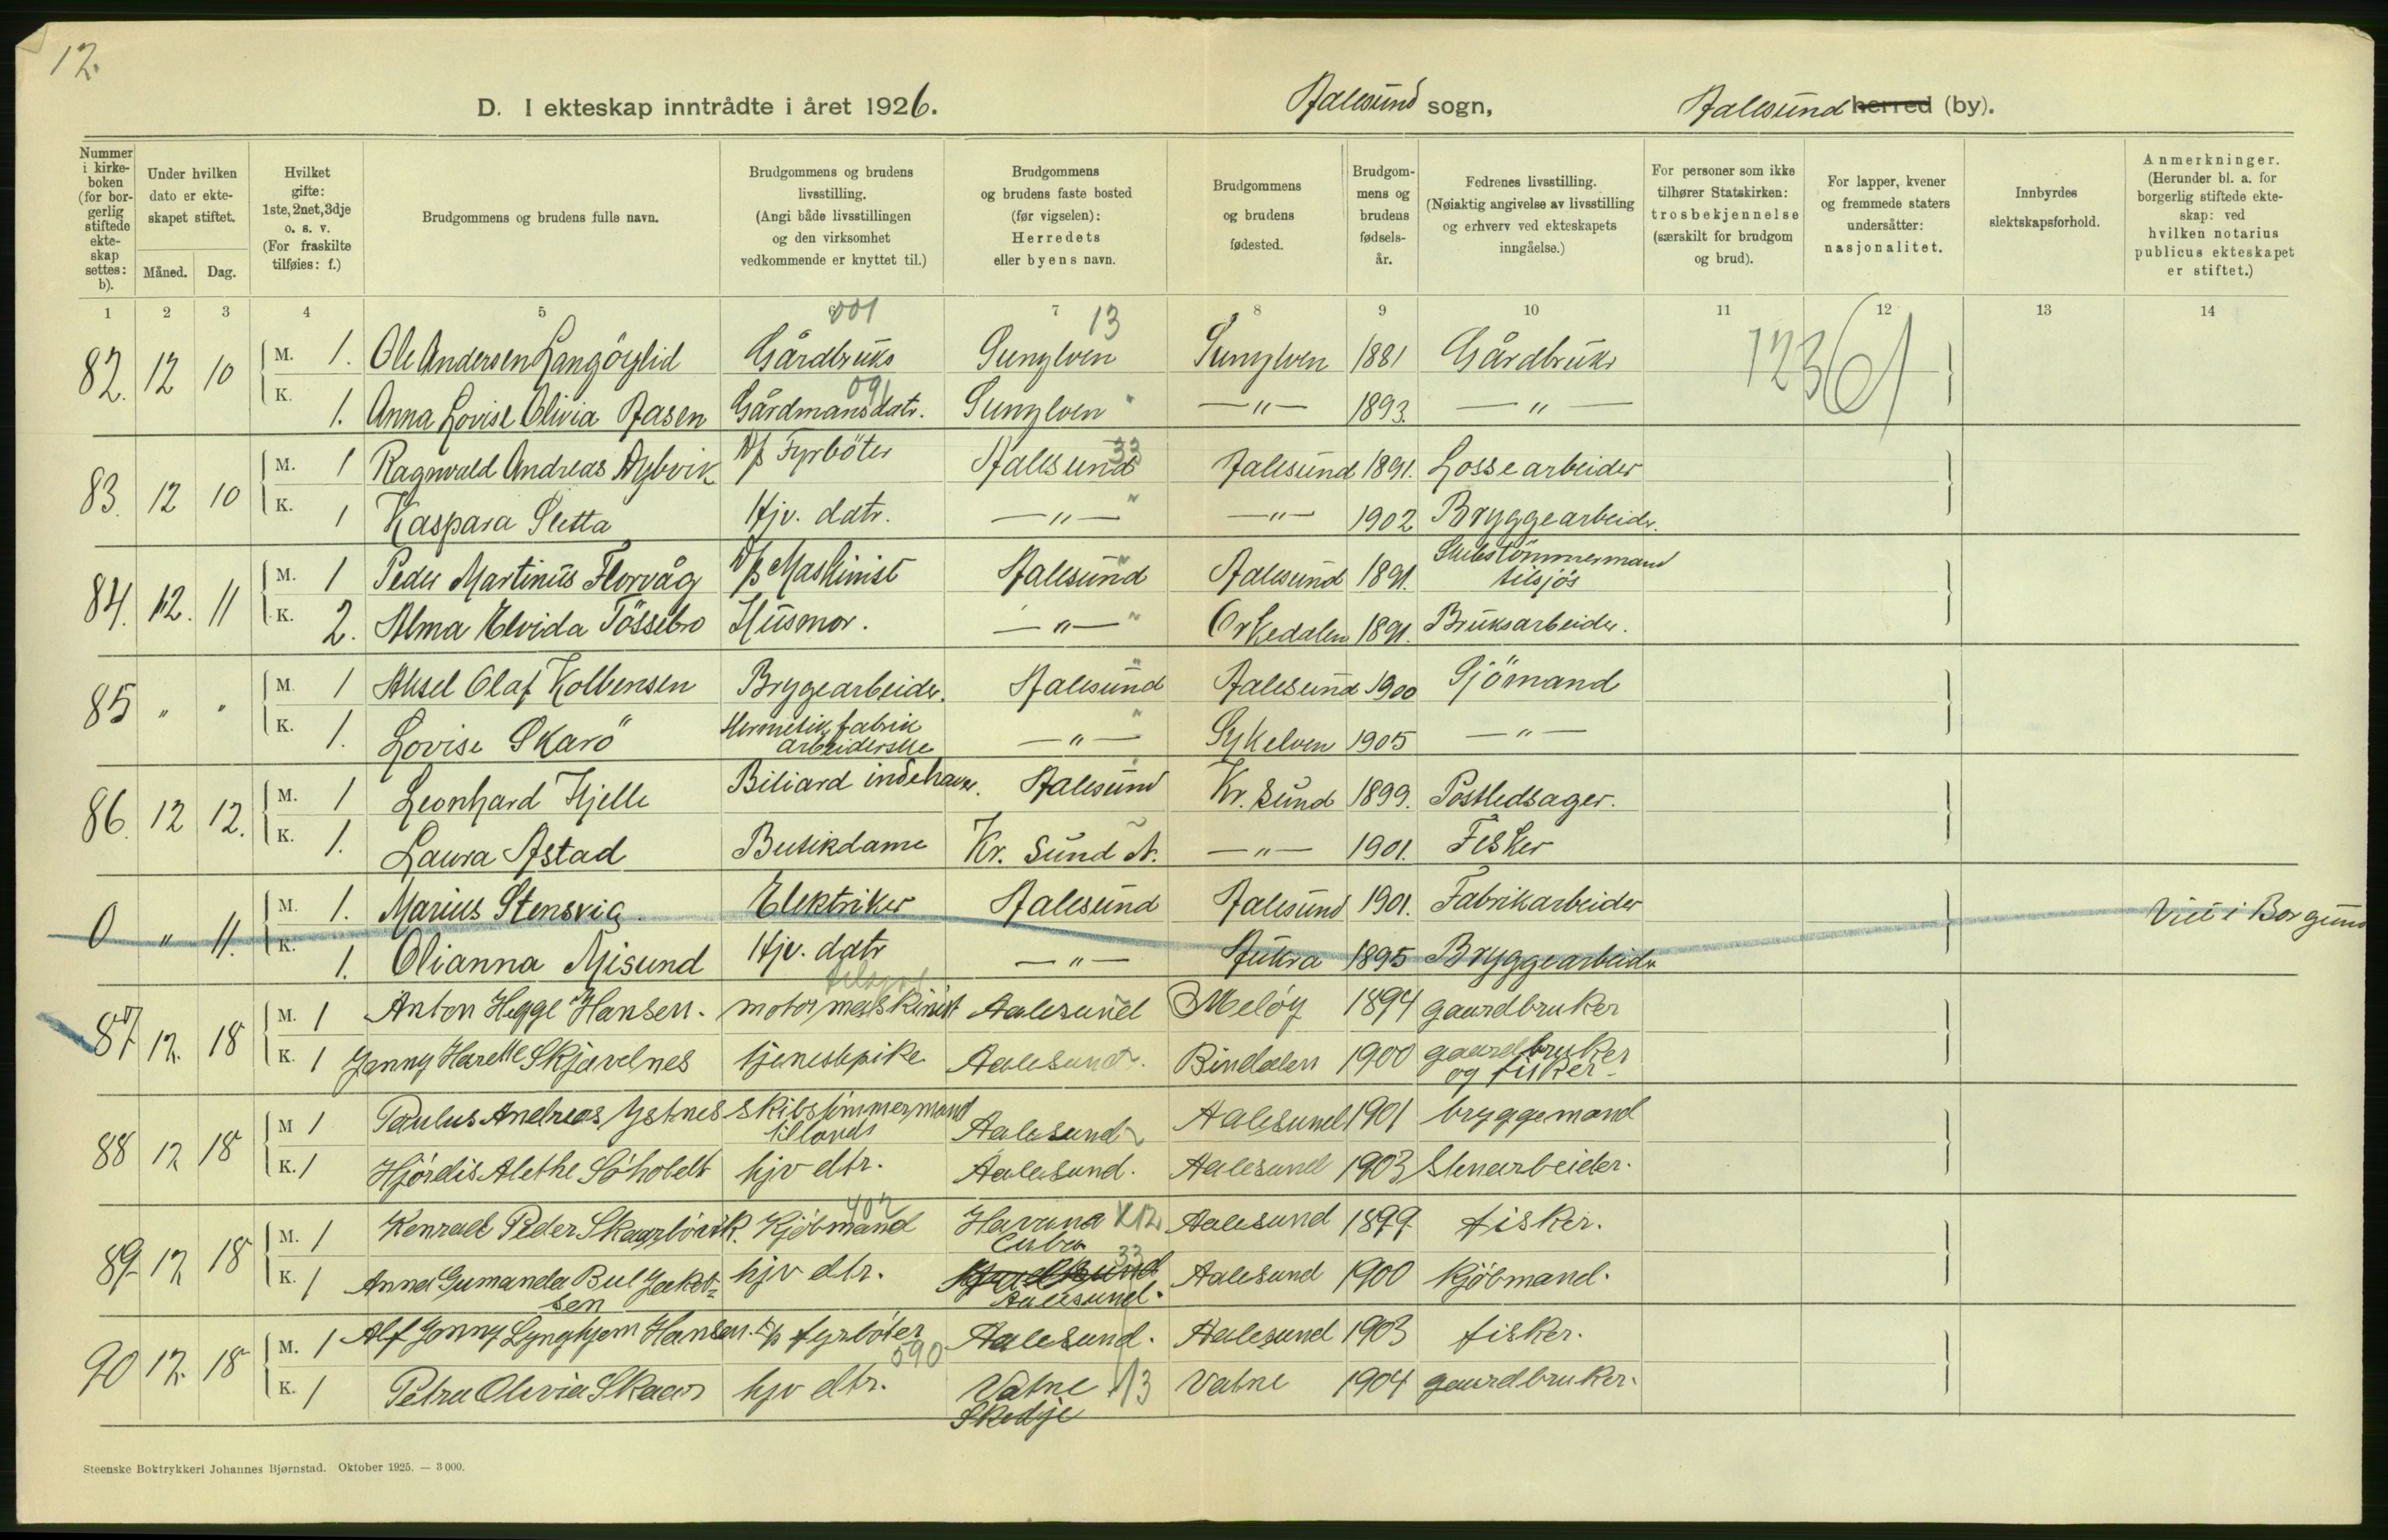 12.
D. I ekteskap inntrådte i året 1926.
Aalesund sogn,
Aalesund herred (by).
Nummer i kirkeboken (for borgerlig stiftede ekteskap settes: b).
Under hvilken dato er ekteskapet stiftet.
Måned.
Dag.
Hvilket gifte: 1ste, 2net, 3dje o. s. v. (For fraskilte tilføies: f.)
Brudgommens og brudens fulle navn.
Brudgommens og brudens livsstilling. (Angi både livsstillingen og den virksomhet vedkommende er knyttet til.)
Brudgommens og brudens faste bosted (før vigselen): Herredets eller byens navn.
Brudgommens og brudens fødested.
Brudgommens og brudens fødselsår.
Fedrenes livsstilling. (Nøiaktig angivelse av livsstilling og erhverv ved ekteskapets inngåelse.)
For personer som ikke tilhører Statskirken: trosbekjennelse (særskilt for brudgom og brud).
For lapper, kvener og fremmede staters undersåtter: nasjonalitet.
Innbyrdes slektskapsforhold.
Anmerkninger. (Herunder bl. a. for borgerlig stiftede ekteskap: ved hvilken notarius publicus ekteskapet er stiftet.)
1 2 3 4 5 6 7 8 9 10 11 12 13 14
001 13
82. 12 10 M. 1. Ole Andersen Langöylid Gårdbruks Sunylven Sunylven 1881 Gårdbruks 12361
091
K. 1. Anna Lovise Olivia Aasen Gårdmansdatr. Sunylven " —"— 1893. —"—
83. 12 10 M. 1 Ragnvald Andreas Nybvik D/s Fyrböter Aalesund 33 Aalesund 1891. Lossearbeider
K. 1 Kaspara Sletta Hjv. datr. —"— " —"— 1902 Bryggearbeider.
84. 12. 11 M. 1 Peder Martinus Florvåg D/s Maskinist Aalesund Aalesund 1891. Skibstömmermand tilsjös
K. 2. Alma Elvida Tössebro Husmor. —"— " Orkedalen 1891. Bruksarbeider.
85 " " M. 1 Aksel Olaf Kolbensen Brygearbeider. Aalesund Aalesund 1900 Sjömand
K. 1. Lovise Skarö Hermetikfabrik arbeiderske —"— " Sykelven 1905 —"—
86. 12 12. M. 1 Leonhard Hjelle Biliard indehaver. Aalesund Kr. Sund 1899. Postledsager.
K. 1. Laura Astad Butikdame Kr. Sund N. —"— 1901. Fisker
0 " 11. M. 1. Marius Stensvig. Elektriker Aalesund Aalesund 1901. Fabrikarbeider Viet i Borgund
K. 1. Olianna Misund Hjv. datr —"— Aukra 1895 Bryggearbeider
tilsjös
87 12. 18 M. 1 Anton Hegge Hansen. motormaskinist Aalesund Meløy 1894 gaardbruker
K. 1 Jenny Harette Skjavelnes tjenestepike Aalesund. Bindalen 1900 gaardbruker og fisker.
88 12 18 M 1 Paulus Andreas Ystnes skibstømmermand tillands Aalesund Aalesund 1901 bryggemand
K. 1 Hjördis Alethe Söholdt hjv dtr. Aalesund. Aalesund 1903 Stenarbeider.
89 12 18 M. 1 Konrad Peder Skarsbövik. Kjöbmand 402 Havana Cuba X12 Aalesund 1899 fisker.
K. 1 Anna Gumanda Bul Jakobsen hjv dtr. 33 Aalesund. Aalesund 1900 kjöbmand.
90 12. 18 M. 1 Alf Jonny Lynghjem Hansen. D/s fyrböter Aalesund. Aalesund 1903 fisker.
590
K. 1 Petra Olivia Skaar hjv dtr. Vatne Skodje 13 Vatne 1904 gaardbruker.
Steenske Boktrykkeri Johannes Bjørnstad. Oktober 1925. — 3 000.